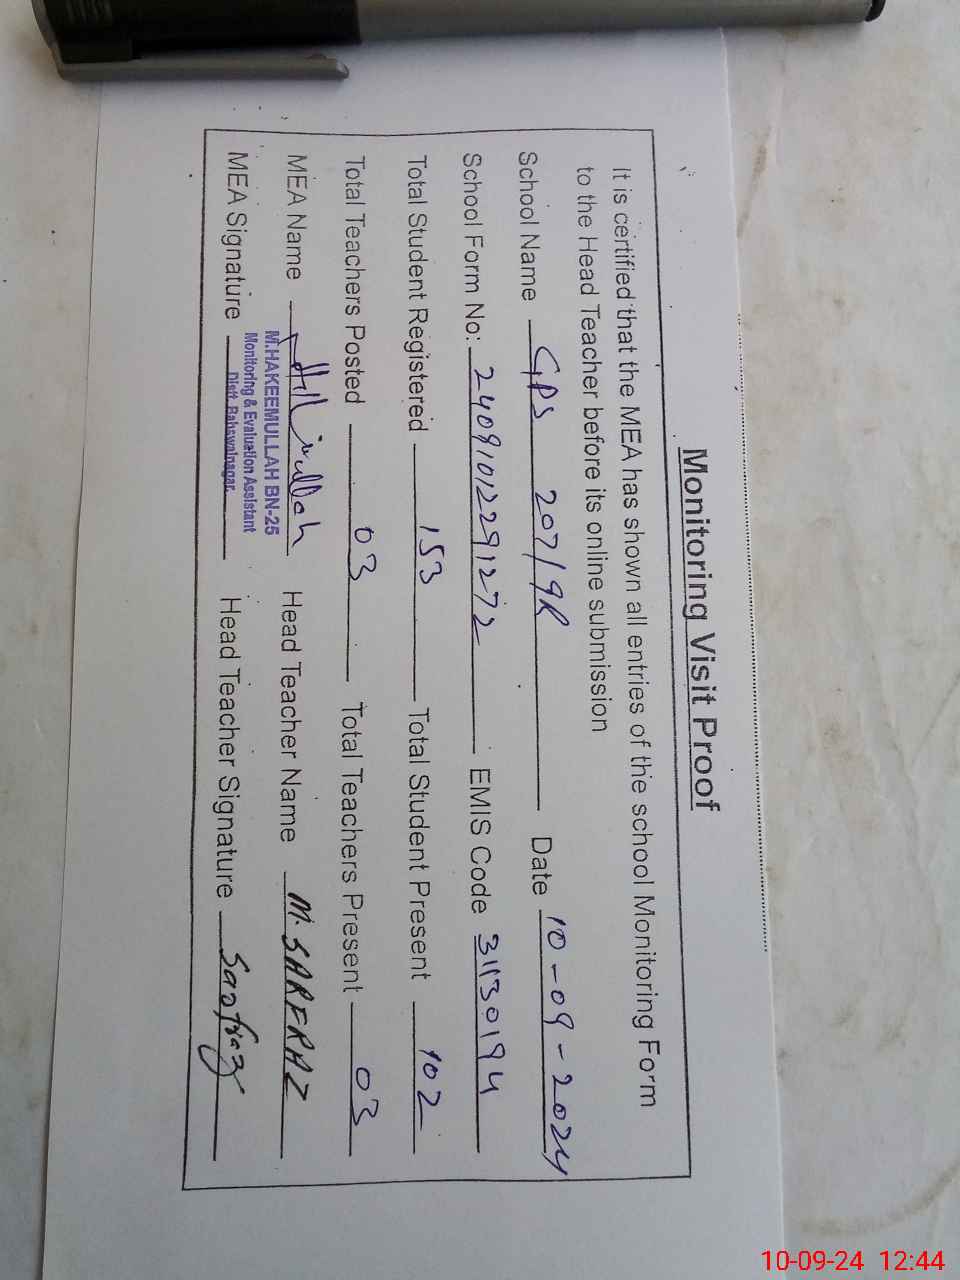 Monitoring Visit Proof
It is certified that the MEA has shown all entries of the school Monitoring Form
to the Head Teacher before its online submission
School Name GPS 207/9R Date 10-09-2024
School Form No: 24091012291272 EMIS Code 31130194
Total Student Registered 153 Total Student Present 102
Total Teachers Posted 03 Total Teachers Present 03
MEA Name Head Teacher Name M. SARFRAZ
M.HAKEEMULLAH BN-25
Monitoring & Evaluation Assistant
Distt. Bahawalnagar.
MEA Signature Head Teacher Signature Sarfraz
10-09-24 12:44